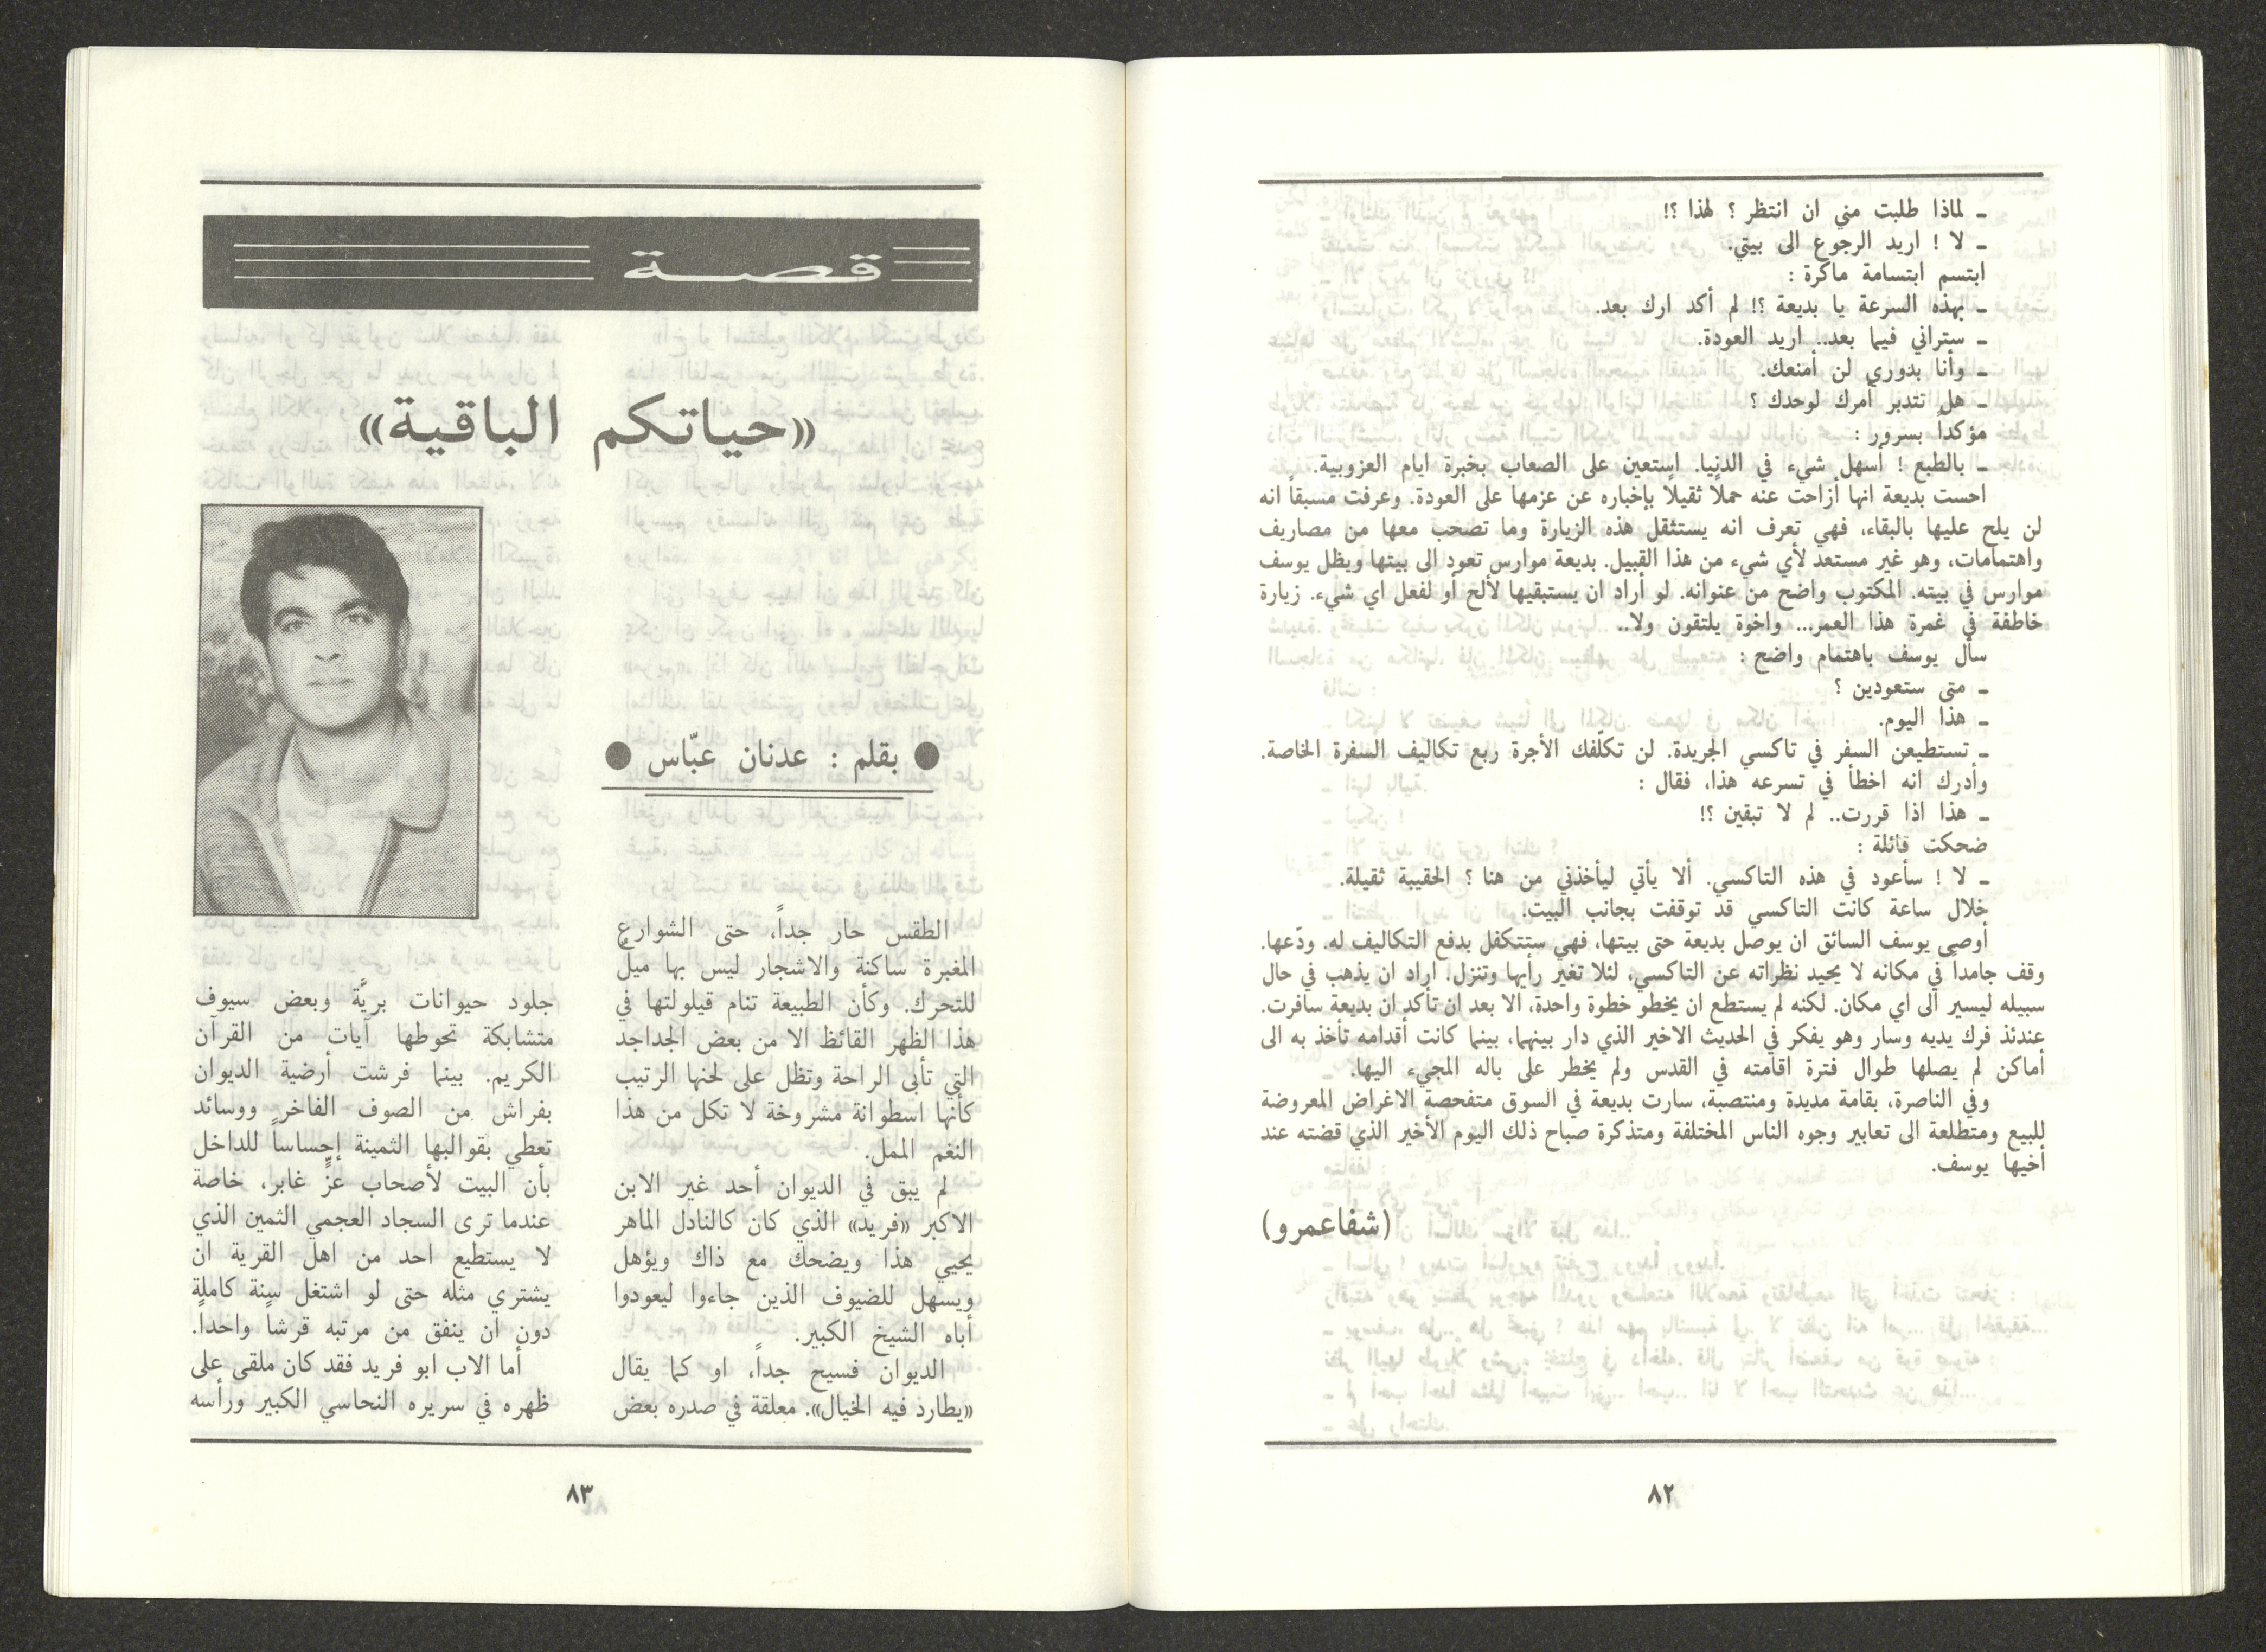 ـ لماذا طلبت مني ان انتظر ؟ لهذا ؟!
ـ لا ! اريد الرجوع الى بيتي.
ابتسم ابتسامة ماكرة :
ـ بهذه السرعة يا بديعة ؟! لم أكد ارك بعد.
ـ ستراني فيما بعد.. اريد العودة.
ـ وأنا بدوري لن أمنعك.
ـ هل تتدبر أمرك لوحدك ؟
مؤكداً بسرور :
ـ بالطبع ! أسهل شيء في الدنيا. استعين على الصعاب بخبرة ايام العزوبية.
احست بديعة انها أزاحت عنه حملاً ثقيلاً بإخباره عن عزمها على العودة. وعرفت مسبقاً انه
لن يلح عليها بالبقاء، فهي تعرف انه يستثقل هذه الزيارة وما تصحب معها من مصاريف
واهتمامات، وهو غير مستعد لأي شيء من هذا القبيل. بديعة موارس تعود الى بيتها ويظل يوسف
موارس في بيته. المكتوب واضح من عنوانه. لو أراد ان يستبقيها لألح أو لفعل اي شيء. زيارة
خاطفة في غمرة هذا العمر... واخوة يلتقون ولا..
سأل يوسف باهتمام واضح :
ـ متى ستعودين ؟
ـ هذا اليوم.
ـ تستطيعن السفر في تاكسي الجريدة. لن تكلّفك الأجرة ربع تكاليف السفرة الخاصة.
وأدرك انه اخطأ في تسرعه هذا، فقال :
ـ هذا اذا قررت.. لم لا تبقين ؟!
ضحكت قائلة :
ـ لا ! سأعود في هذه التاكسي. ألا يأتي ليأخذني من هنا ؟ الحقيبة ثقيلة.
خلال ساعة كانت التاكسي قد توقفت بجانب البيت.
أوصى يوسف السائق ان يوصل بديعة حتى بيتها، فهي ستتكفل بدفع التكاليف له. ودّعها.
وقف جامداً في مكانه لا يحيد نظراته عن التاكسي، لئلا تغير رأيها وتنزل. اراد ان يذهب في حال
سبيله ليسير الى اي مكان. لكنه لم يستطع ان يخطو خطوة واحدة، الا بعد ان تأكد ان بديعة سافرت.
عندئذ فرك يديه وسار وهو يفكر في الحديث الاخير الذي دار بينهما، بينما كانت أقدامه تأخذ به الى
أماكن لم يصلها طوال فترة اقامته في القدس ولم يخطر على باله المجيء اليها.
وفي الناصرة، بقامة مديدة ومنتصبة، سارت بديعة في السوق متفحصة الاغراض المعروضة
للبيع ومتطلعة الى تعابير وجوه الناس المختلفة ومتذكرة صباح ذلك اليوم الأخير الذي قضته عند
أخيها يوسف.
(شفاعمرو)
٨٢
قصة
«حياتكم الباقية»
● بقلم : عدنان عبّاس ●
الطقس حار جداً، حتى الشوارع
المغبرة ساكنة والاشجار ليس بها ميل
للتحرك. وكأن الطبيعة تنام قيلولتها في
هذا الظهر القائظ الا من بعض الجداجد
التي تأبى الراحة وتظل على لحنها الرتيب
كأنها اسطوانة مشروخة لا تكل من هذا
النغم الممل.
لم يبق في الديوان أحد غير الابن
الاكبر «فريد» الذي كان كالنادل الماهر
يحيي هذا ويضحك مع ذاك ويؤهل
ويسهل للضيوف الذين جاءوا ليعودوا
أباه الشيخ الكبير.
الديوان فسيح جداً، او كما يقال
«يطارد فيه الخيال». معلقة في صدره بعض
جلود حيوانات بريَّة وبعض سيوف
متشابكة تحوطها آيات من القرآن
الكريم. بينما فرشت أرضية الديوان
بفراش من الصوف الفاخر ووسائد
تعطي بقوالبها الثمينة إحساساً للداخل
بأن البيت لأصحاب عزٍّ غابر، خاصة
عندما ترى السجاد العجمي الثمين الذي
لا يستطيع احد من اهل القرية ان
يشتري مثله حتى لو اشتغل سنة كاملة
دون ان ينفق من مرتبه قرشاً واحداً.
أما الاب ابو فريد فقد كان ملقى على
ظهره في سريره النحاسي الكبير ورأسه
٨٣